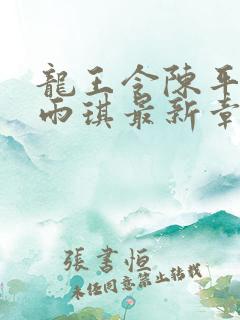 龍王令陳平
雨琪最新章
張書恒
未经同意禁止转载